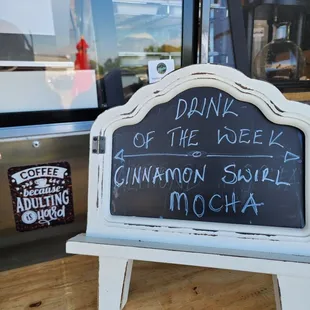 DRINK
OF THE WEEK
CINNAMON SWIRL
MOCHA
COFFEE
because
ADULTING
is
Hard